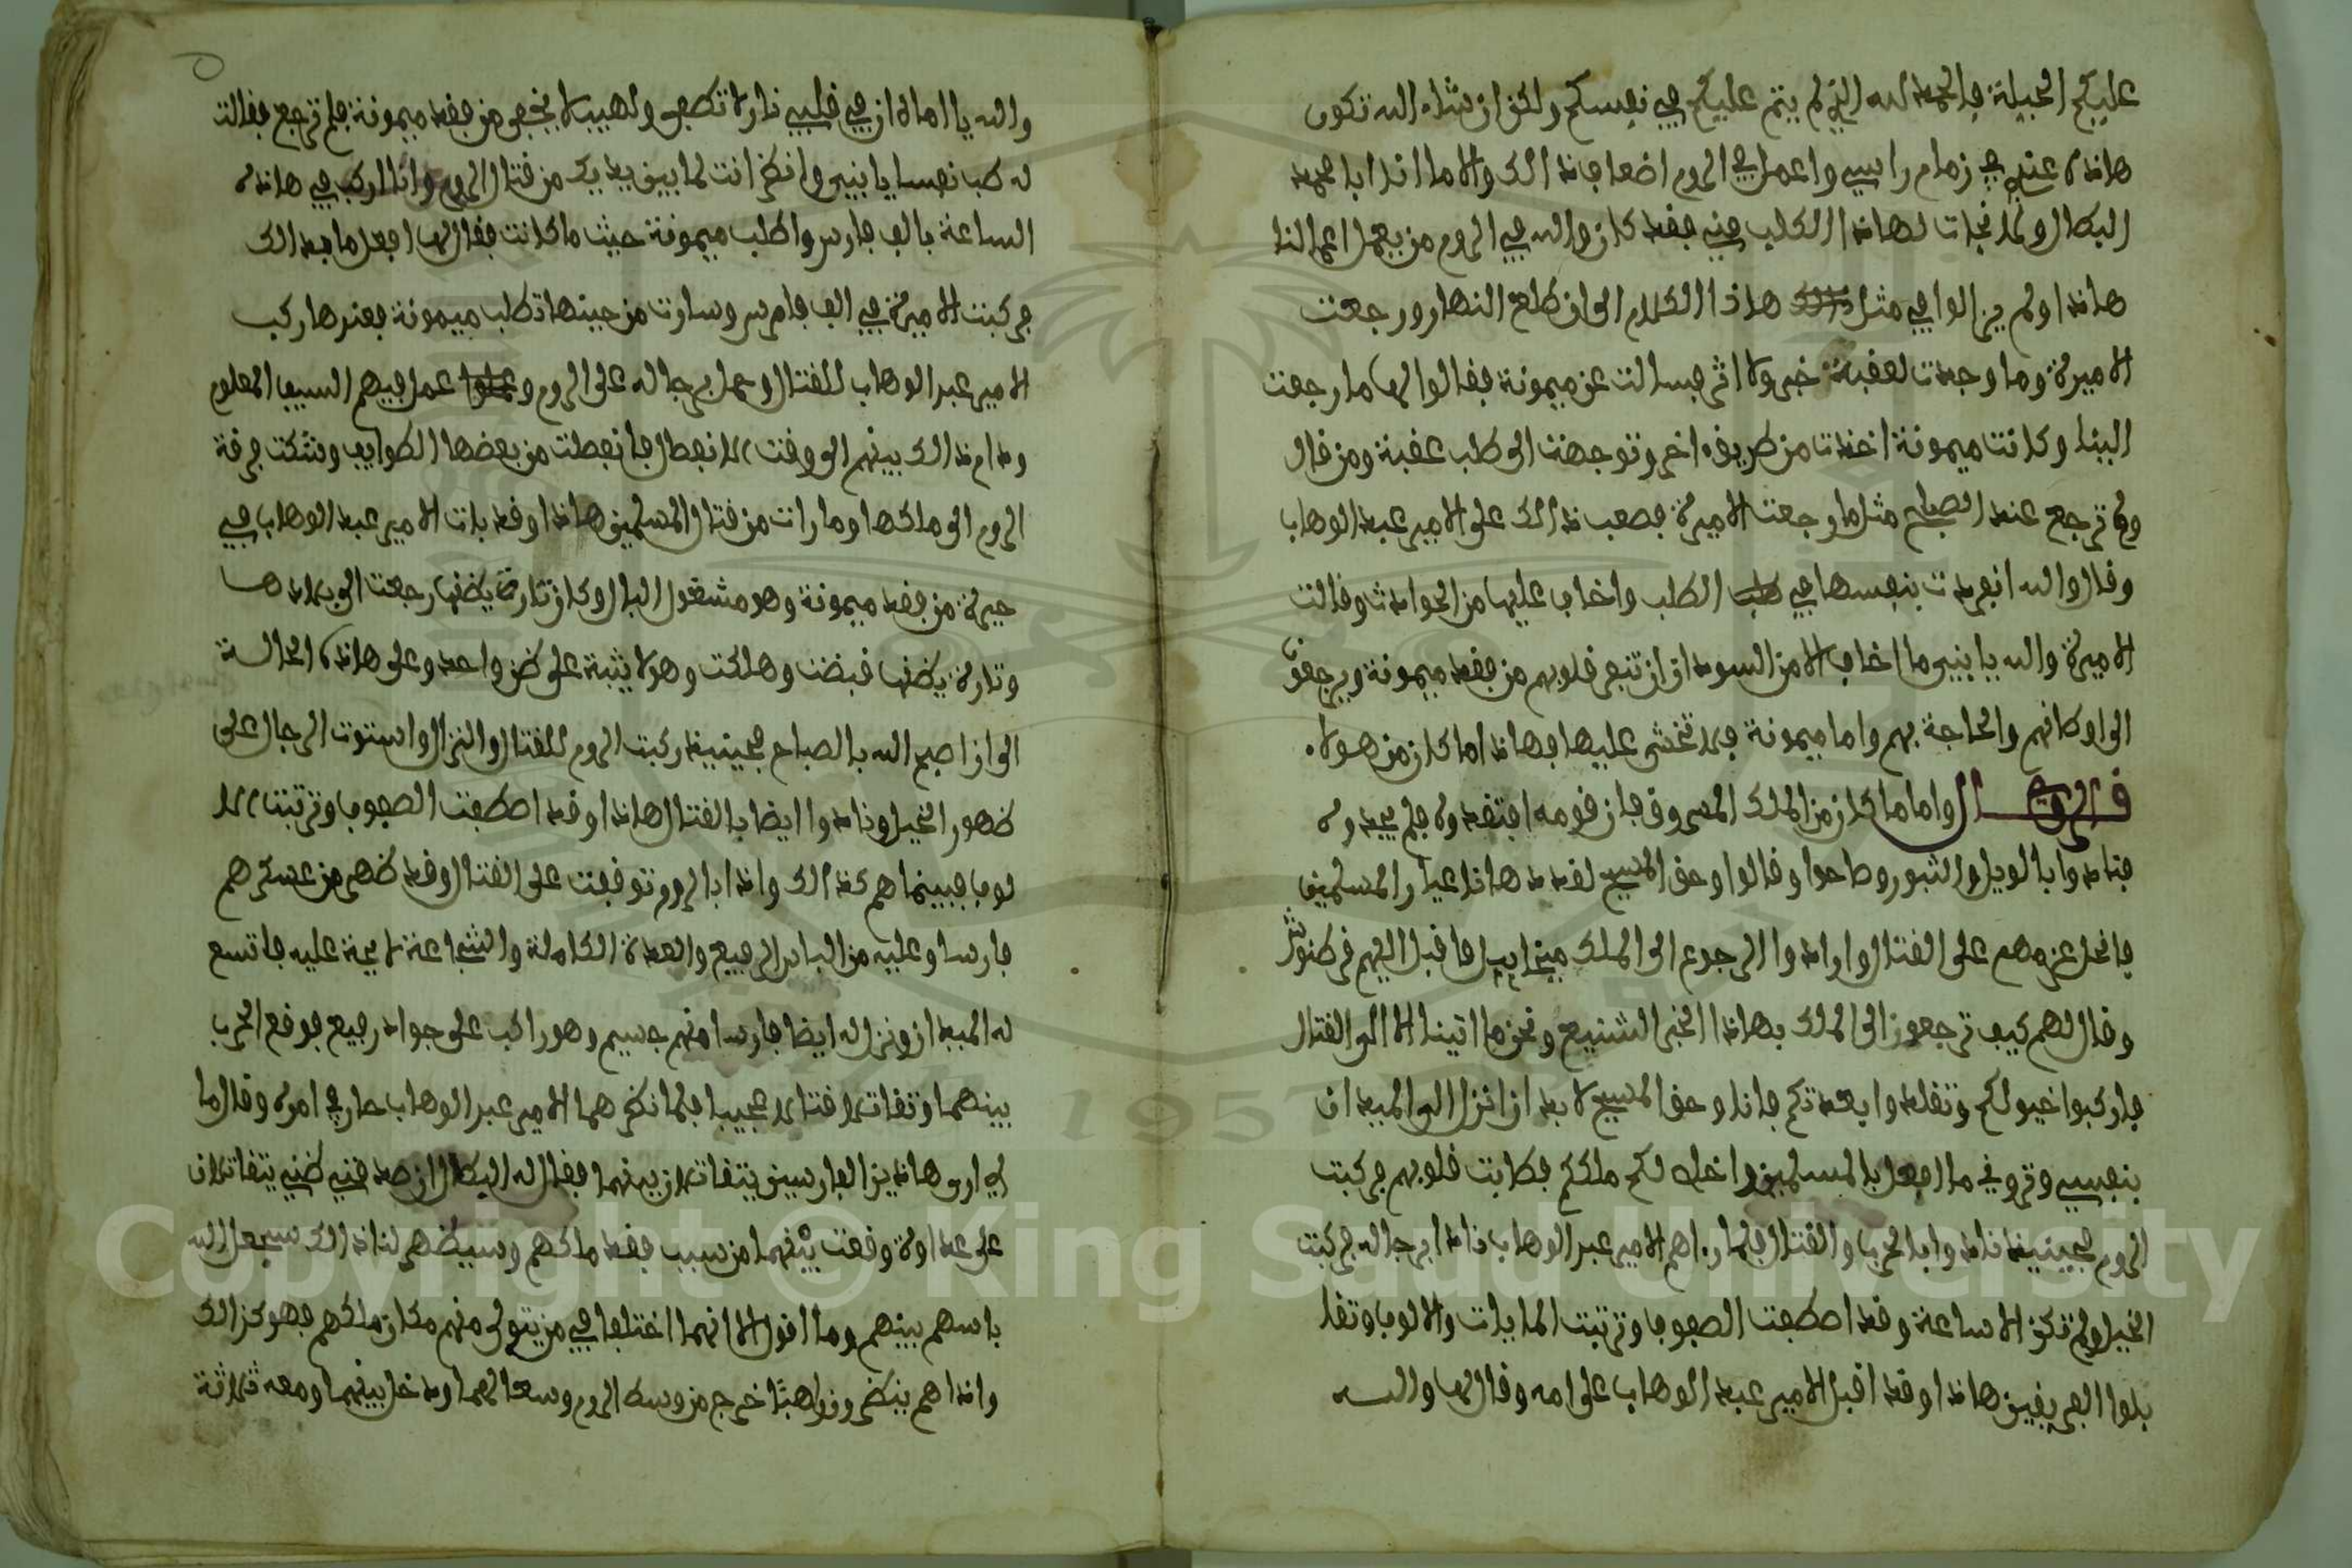 عليكم الحيلة فالحمد لله الذي لم يتم عليكم في نفسكم ولكن ان شاء الله تكون
هاذه عندي في زمام راسي واعمل في الروم اضعاف ذالك والا ما انا ابا محمد
البطال ولا نجات لهاذا الكلب مني فقد كان والله في الروم من يعمل اعمالنا
هاذا ولم يزالوا في مثل هاذا الكلام الى ان طلع النهار ورجعت
الاميرة وما وجدت لعقبة خبر ولا اثر فسالت عن ميمونة فقالوا لها ما رجعت
الينا وكانت ميمونة اخذت من طريق اخر وتوجهت الى طلب عقبة ومن قال
ولم ترجع عند الصباح مثل ما رجعت الاميرة فصعب ذالك على الامير عبد الوهاب
وقال والله انفردت بنفسها في الطلب واخاف عليها من الحوادث وقالت
الاميرة والله يا بني ما اخاف الا من السودان ان تنفر قلوبهم من فقد ميمونة ويرجعون
الى اوطانهم والحاجة بهم واما ميمونة فلا تخشى عليها فهاذا ما كان من هولاء
قال الراوي واما ما كان من الملك المسروق فان قومه افتقدوه فلم يجدوه
فنادوا بالويل والثبور وصاحوا وقالوا وحق المسيح لقد هاذا عيار المسلمين
فانحل عزمهم على القتال وارادوا الرجوع الى الملك ميخاييل فاقبل اليهم قرطنوش
وقال لهم كيف ترجعون الى الملك بهاذا الخبر الشنيع ونحن ما اتينا الا الى القتال
فاركبوا خيولكم وتقلدوا بعدتكم فانا وحق المسيح لا بد ان انزل الى الميدان
بنفسي وتروني ما افعل بالمسلمين واخلص لكم ملككم فطابت قلوبهم فركبت
الروم فحينيذ نادوا بالحرب والقتال فلما راهم الامير عبد الوهاب نادا برجاله فركبت
الخيل ولم تكن الا ساعة وقد اصطفت الصفوف وترتبت المايات والالوف وتقا
بلوا الفريقين هاذا وقد اقبل الامير عبد الوهاب على امه وقال لها والله
والله يا اماه ان في قلبي نار لا تطفى ولهيب لا يخفى من فقد ميمونة فلم ترجع فقالت
له طب نفسا يا بني وانظر انت لما بين يديك من قتال الروم وانا اركب في هاذه
الساعة بالف فارس واطلب ميمونة حيث ما كانت فقال لها افعل ما بدالك
فركبت الاميرة في الف فارس وسارت من حينها تطلب ميمونة فعندها ركب
الامير عبد الوهاب للقتال وحمل برجاله على الروم وعمل فيهم السيف المعلوم
ودام ذالك بينهم الى وقت الانفصال فانفصلت من بعضها الطوايف وشكت فرقة
الروم الى ملكها وما رات من قتال المسلمين هاذا وقد بات الامير عبد الوهاب في
حيرة من فقد ميمونة وهو مشغول البال وكان تارة يظنها رجعت الى بلادها
وتارة يظنها قبضت وهلكت وهو لا يثبة على ظن واحد وعلى هاذه الحالة
الى ان اصبح الله بالصباح فحينيذ ركبت الروم للقتال والنزال واستوت الرجال على
ظهور الخيل ونادوا ايضا بالقتال هاذا وقد اصطفت الصفوف وترتبت الا
لوف فبينما هم كذالك واذا بالروم توقفت على القتال وقد ظهر من عسكرهم
فارسا وعليه من الباس الرفيع والعدة الكاملة والشجاعة لايحة عليه فاتسع
له الميدان ونزل له ايضا فارسا منهم جسيم وهو راكب على جواد رفيع فوقع الحرب
بينهما وتقاتلا قتالا عجيبا فلما نظرهما الامير عبد الوهاب حار في امره وقال ما
لي ارى هاذين الفارسين يتقاتلان بينهما فقال له البطال ان صدقني ظني يتقاتلان
على عداوة وقعت بينهما من سبب فقد ملكهم وسيظهر لنا ذالك سيجعل الله
باسهم بينهم وما اقول الا انهما اختلفا في من يتولى منهم مكان ملكهم فهو كذالك
واذا هم ينظرون راهبا خرج من وسط الروم وسعا لهما ودخل بينهما ومعه ثلاثة
Copyright © King Saud University
1957